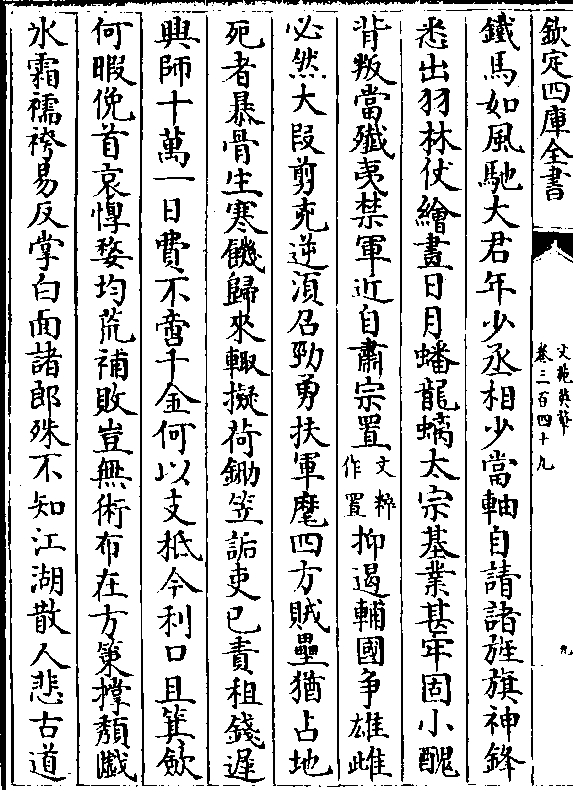 欽定四庫全書
文苑英華
卷三百四十九
九
鐵馬如風馳大君年少丞相少當軸自請諸旌旗神鋒
悉出羽林仗繪畫日月蟠龍螭太宗基業甚牢固小醜
背叛當殲夷禁軍近自肅宗置文粹作置抑遏輔國争雄雌
必然大段剪克逆須召勁勇扶軍麾四方賊壘猶占地
死者暴骨生寒饑歸來輙擬荷鋤笠詬吏已責租錢遲
興師十萬一日費不啻千金何以支秪今利口且箕斂
何暇俛首哀惸嫠均荒補敗豈無術布在方策撑頽㦻
氷霜襦袴易反掌白面諸郎殊不知江湖散人悲古道